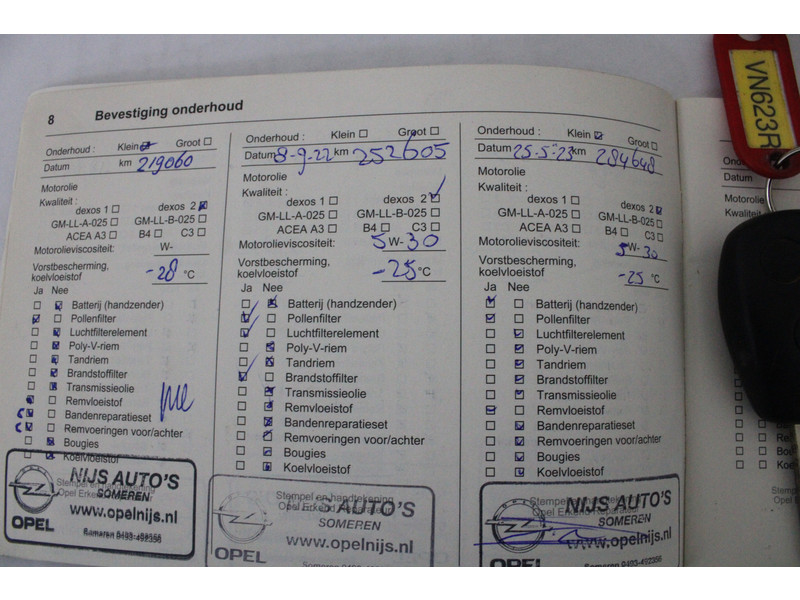 8 Bevestiging onderhoud
Onderhoud : Klein Groot
Datum km 219060
Motorolie
Kwaliteit :
dexos 1 dexos 2
GM-LL-A-025 GM-LL-B-025
ACEA A3 B4 C3
Motorolieviscositeit: W-
Vorstbescherming,
koelvloeistof -28 °C
Ja Nee
Batterij (handzender)
Pollenfilter
Luchtfilterelement
Poly-V-riem
Tandriem
Brandstoffilter
Transmissieolie
Remvloeistof
Bandenreparatieset
Remvoeringen voor/achter
Bougies
Koelvloeistof
Stempel en handtekening
Opel Erkend Reparateur
NIJS AUTO'S
SOMEREN
www.opelnijs.nl
OPEL
Someren 0493-492356
Onderhoud : Klein Groot
Datum 8-9-22 km 252605
Motorolie
Kwaliteit :
dexos 1 dexos 2
GM-LL-A-025 GM-LL-B-025
ACEA A3 B4 C3
Motorolieviscositeit: 5 W-30
Vorstbescherming,
koelvloeistof -25 °C
Ja Nee
Batterij (handzender)
Pollenfilter
Luchtfilterelement
Poly-V-riem
Tandriem
Brandstoffilter
Transmissieolie
Remvloeistof
Bandenreparatieset
Remvoeringen voor/achter
Bougies
Koelvloeistof
Stempel en handtekening
Opel Erkend Reparateur
AUTO'S
SOMEREN
www.opelnijs.nl
OPEL
Onderhoud : Klein Groot
Datum 25-5-23 km 284648
Motorolie
Kwaliteit :
dexos 1 dexos 2
GM-LL-A-025 GM-LL-B-025
ACEA A3 B4 C3
Motorolieviscositeit: 5 W-30
Vorstbescherming,
koelvloeistof -25 °C
Ja Nee
Batterij (handzender)
Pollenfilter
Luchtfilterelement
Poly-V-riem
Tandriem
Brandstoffilter
Transmissieolie
Remvloeistof
Bandenreparatieset
Remvoeringen voor/achter
Bougies
Koelvloeistof
Stempel en handtekening
Opel Erkend Reparateur
NIJS AUTO'S
SOMEREN
www.opelnijs.nl
OPEL
Someren 0493-492356
VN623R
Datum
Motorolie
Kwaliteit